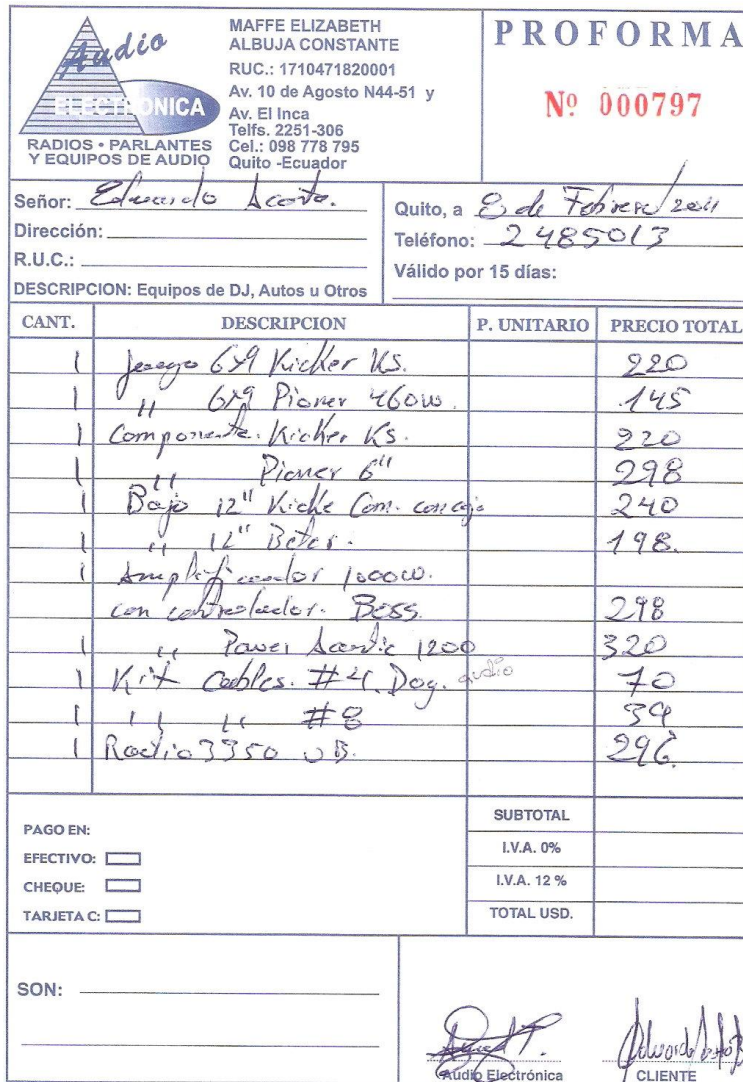 Audio
ELECTRONICA
RADIOS • PARLANTES
Y EQUIPOS DE AUDIO
MAFFE ELIZABETH
ALBUJA CONSTANTE
RUC.: 1710471820001
Av. 10 de Agosto N44-51 y
Av. El Inca
Telfs. 2251-306
Cel.: 098 778 795
Quito -Ecuador
PROFORMA
Nº 000797
Señor: Eduardo Acosta.
Dirección:
R.U.C.:
DESCRIPCION: Equipos de DJ, Autos u Otros
Quito, a 8 de Febrero/2011
Teléfono: 2485013
Válido por 15 días:
CANT. DESCRIPCION P. UNITARIO PRECIO TOTAL
1 juego 6x9 Kicker KS. 220
1 " 6x9 Pioner 460w. 145
1 Componente Kicker KS. 220
1 " Pioner 6" 298
1 Bajo 12" Kicke Com. con caja 240
1 " 12" 198.
1 Amplificador 1000w.
con controlador. Boss. 298
1 " Power Acustic 1200 320
1 Kit Cables. #4. Dog. audio 70
1 " " #8 39
1 Radio 3350 UB. 296
PAGO EN:
EFECTIVO:
CHEQUE:
TARJETA C:
SUBTOTAL
I.V.A. 0%
I.V.A. 12 %
TOTAL USD.
SON:
Audio Electrónica
CLIENTE